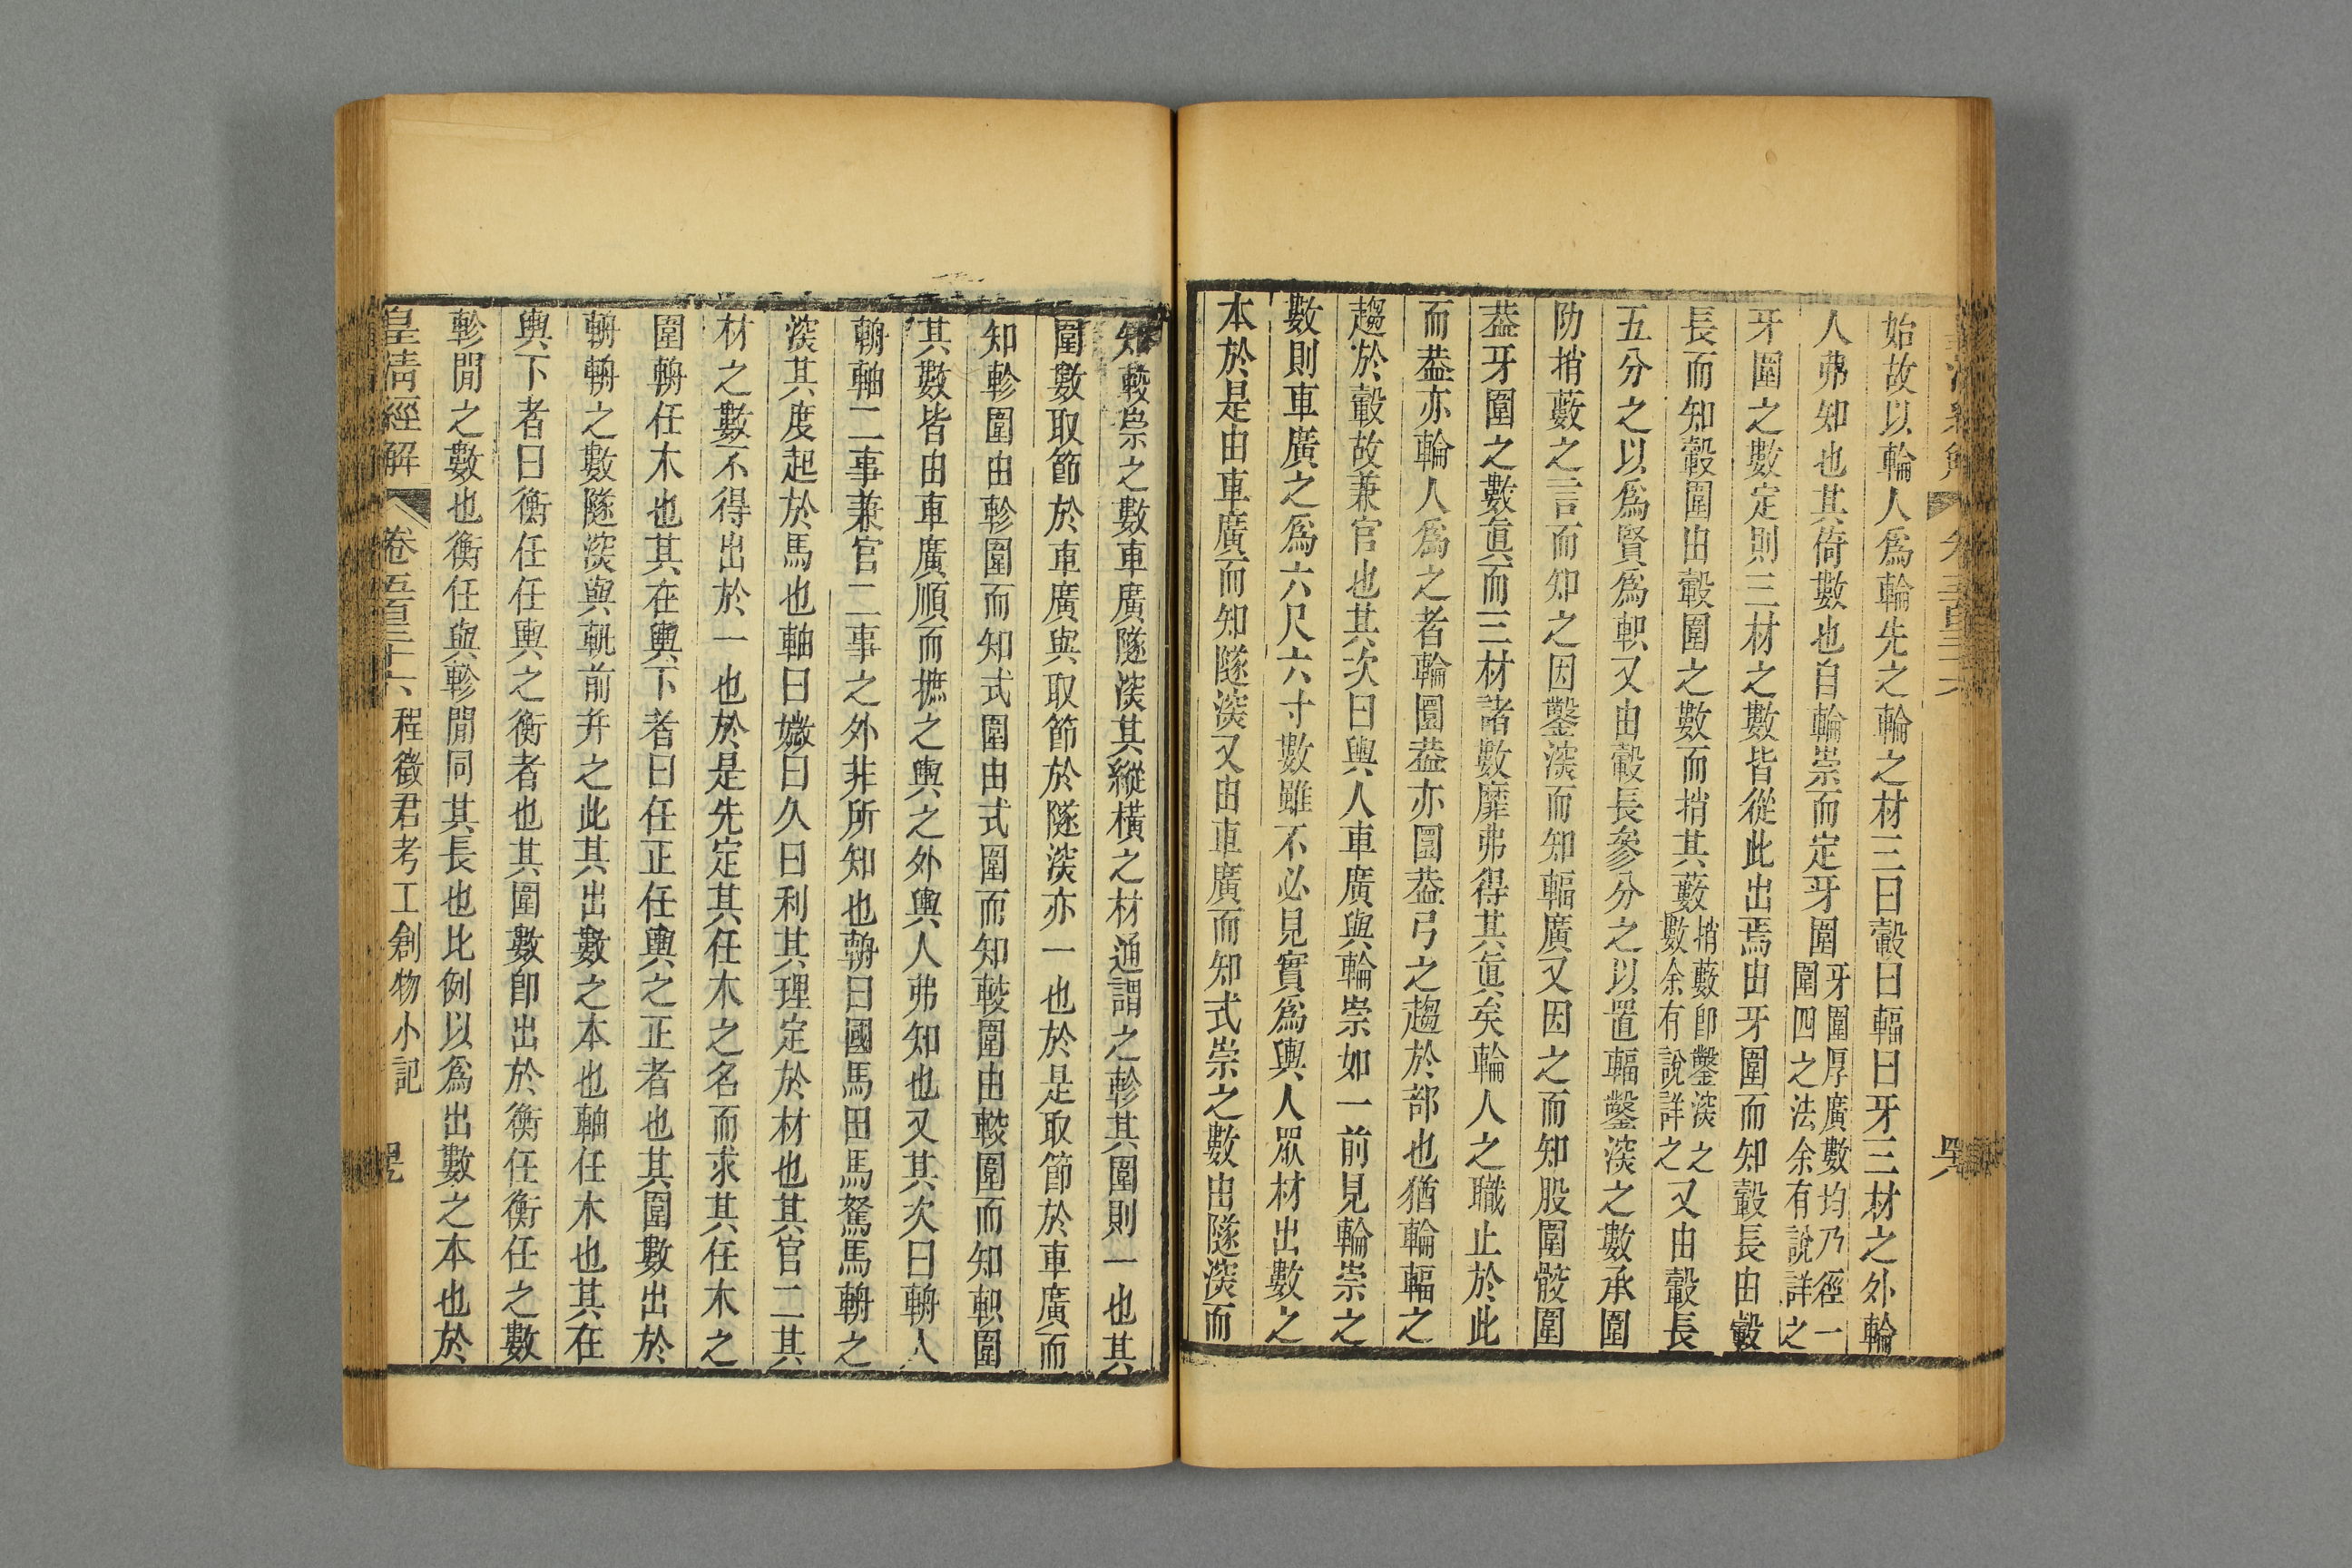 始故以輪人爲輪先之輪之材三曰轂曰輻曰牙三材之外輪
人弗知也其倚數也自輪崇而定牙圍牙圍厚廣數均乃徑一圍四之法余有說詳之
牙圍之數定則三材之數皆從此出焉由牙圍而知轂長由轂
長而知轂圍由轂圍之數而捎其藪捎藪卽鑿深之數余有說詳之又由轂長
五分之以爲賢爲軹又由轂長參分之以置輻鑿深之數承圍
阞捎藪之言而知之因鑿深而知輻廣又因之而知股圍骹圍
葢牙圍之數眞而三材諸數靡弗得其眞矣輪人之職止於此
而葢亦輪人爲之者輪圜葢亦圜葢弓之趨於部也猶輪輻之
趨於轂故兼官也其次曰輿人車廣與輪崇如一前見輪崇之
數則車廣之爲六尺六寸數雖不必見實爲輿人眾材出數之
本於是由車廣而知隧深又由車廣而知式崇之數由隧深而
知較崇之數車廣隧深其縱橫之材通謂之軫其圍則一也其
圍數取節於車廣與取節於隧深亦一也於是取節於車廣而
知軫圍由軫圍而知式圍由式圍而知較圍由較圍而知軹圍
其數皆由車廣順而摭之輿之外輿人弗知也又其次曰輈人
輈軸二事兼官二事之外非所知也輈曰國馬田馬駑馬輈之
深其度起於馬也軸曰媺曰久曰利其理定於材也其官二其
材之數不得出於一也於是先定其任木之名而求其任木之
圍輈任木也其在輿下者曰任正任輿之正者也其圍數出於
輈輈之數隧深與軓前幷之此其出數之本也軸任木也其在
輿下者曰衡任任輿之衡者也其圍數卽出於衡任衡任之數
軫閒之數也衡任與軫閒同其長也比例以爲出數之本也於
皇清經解 卷五百三十六 程徵君考工創物小記